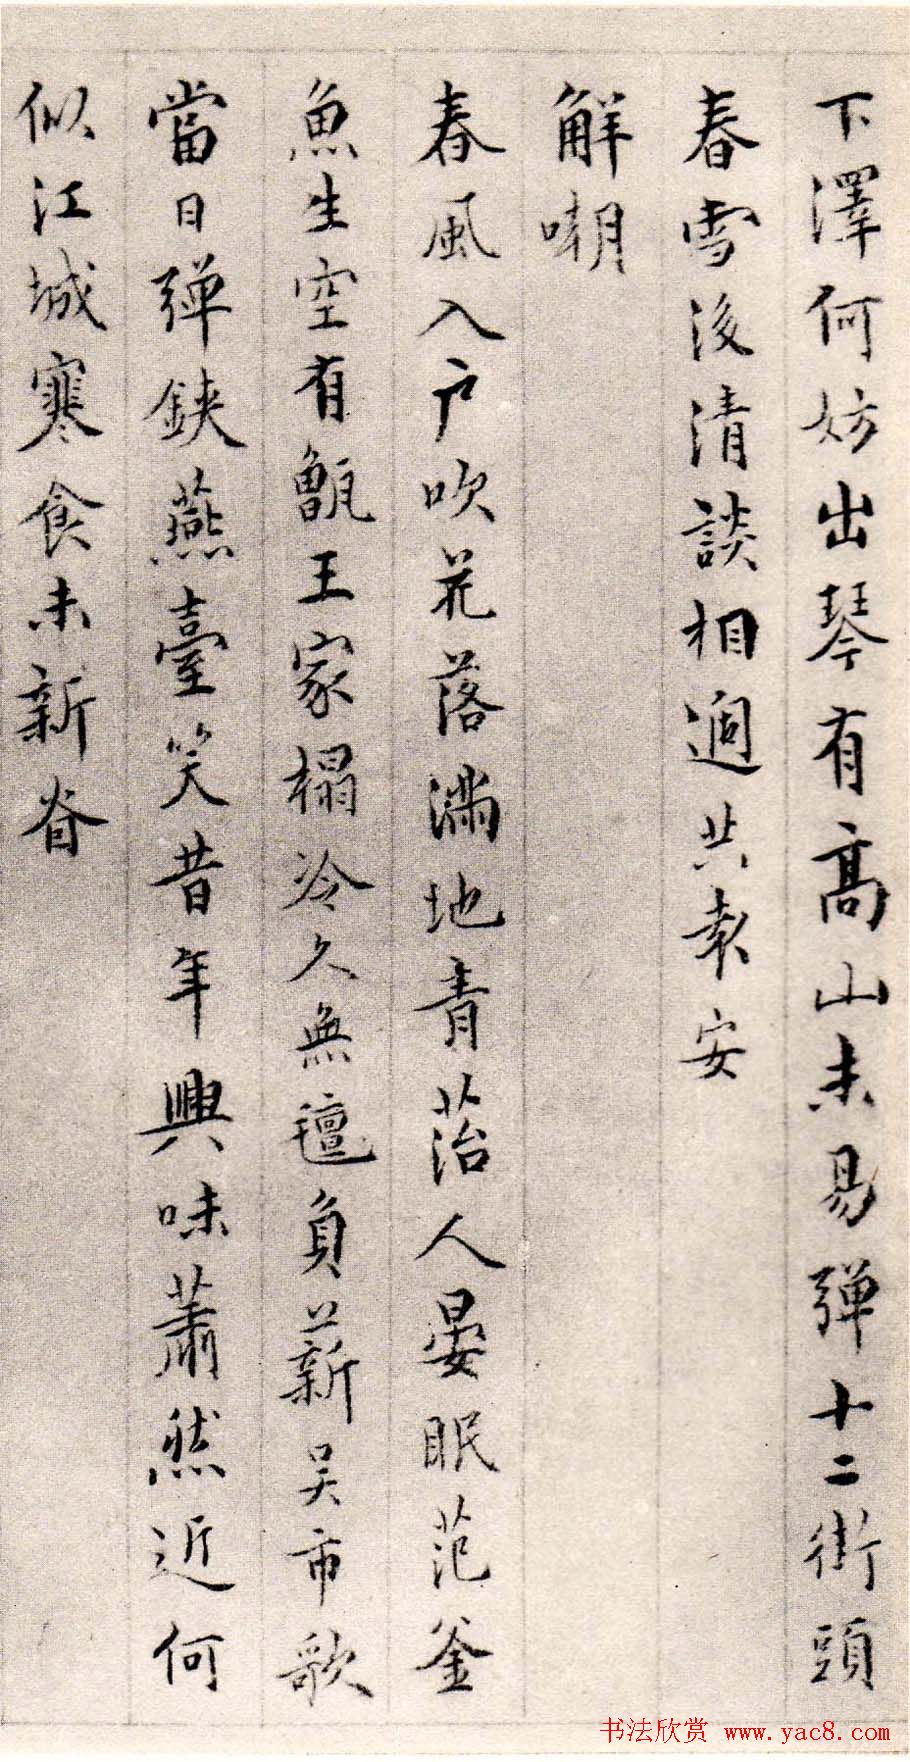 下澤何妨出琴有高山未易彈十二街頭
春雪後清談相過共報安
解嘲
春風入户吹花落滿地青苔人晏眠范釜
魚生空有甑王家榻冷久無氊負薪吴市歌
當日彈鋏燕臺笑昔年興味蕭然近何
似江城寒食未新春
书法欣赏 www.yac8.com